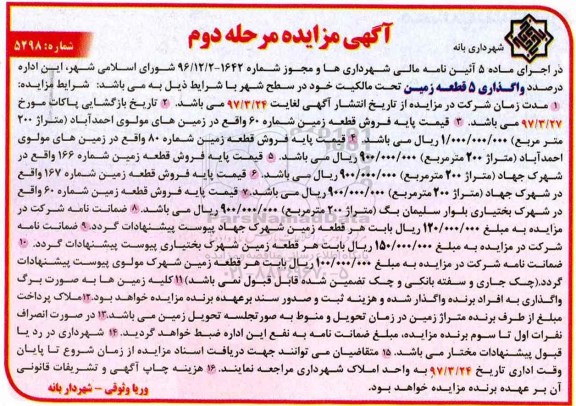 شهرداری بانه
آگهی مزایده مرحله دوم
شماره: ۵۲۹۸
در اجرای ماده ۵ آئین نامه مالی شهرداری ها و مجوز شماره ۱۶۴۲-۹۶/۱۲/۲ شورای اسلامی شهر، این اداره
درصدد واگذاری ۵ قطعه زمین تحت مالکیت خود در سطح شهر با شرایط ذیل به می باشد: شرایط مزایده:
۱ مدت زمان شرکت در مزایده از تاریخ انتشار آگهی لغایت ۹۷/۳/۲۴ می باشد. ۲ تاریخ بازگشایی پاکات مورخ
۹۷/۳/۲۷ می باشد. ۳ قیمت پایه فروش قطعه زمین شماره ۶۰ واقع در زمین های مولوی احمدآباد (متراژ ۲۰۰
متر مربع) ۱/۰۰۰/۰۰۰/۰۰۰ ریال می باشد. ۴ قیمت پایه فروش قطعه زمین شماره ۸۰ واقع در زمین های مولوی
احمدآباد (متراژ ۲۰۰ مترمربع) ۹۰۰/۰۰۰/۰۰۰ ریال می باشد. ۵ قیمت پایه فروش قطعه زمین شماره ۱۶۶ واقع در
شهرک جهاد (متراژ ۲۰۰ مترمربع) ۹۰۰/۰۰۰/۰۰۰ ریال می باشد. ۶ قیمت پایه فروش قطعه زمین شماره ۱۶۷ واقع
در شهرک جهاد (متراژ ۲۰۰ مترمربع) ۹۰۰/۰۰۰/۰۰۰ ریال می باشد. ۷ قیمت پایه فروش قطعه زمین شماره ۶۰ واقع
در شهرک بختیاری بلوار سلیمان بگ (متراژ ۲۰۰ مترمربع) ۹۰۰/۰۰۰/۰۰۰ ریال می باشد. ۸ ضمانت نامه شرکت در
مزایده به مبلغ ۱۲۰/۰۰۰/۰۰۰ ریال بابت هر قطعه زمین شهرک جهاد پیوست پیشنهادات گردد. ۹ ضمانت نامه
شرکت در مزایده به مبلغ ۱۵۰/۰۰۰/۰۰۰ ریال بابت هر قطعه زمین شهرک بختیاری پیوست پیشنهادات گردد. ۱۰
ضمانت نامه شرکت در مزایده به مبلغ ۱۰۰/۰۰۰/۰۰۰ ریال بابت هر قطعه زمین شهرک مولوی پیوست پیشنهادات
گردد.(چک جاری و سفته بانکی و چک تضمین شده قابل قبول نمی باشد) ۱۱ کلیه زمین ها به صورت برگ
واگذاری به افراد برنده واگذار شده و هزینه ثبت و صدور سند برعهده برنده مزایده خواهد بود. ۱۲ ملاک پرداخت
مبلغ از طرف برنده متراژ زمین در زمان تحویل و منوط به صورتجلسه تحویل زمین می باشد. ۱۳ در صورت انصراف
نفرات اول تا سوم برنده مزایده، مبلغ ضمانت نامه به نفع این اداره ضبط خواهد گردید. ۱۴ شهرداری در رد یا
قبول پیشنهادات مختار می باشد. ۱۵ متقاضیان می توانند جهت دریافت اسناد مزایده از زمان شروع تا پایان
وقت اداری تاریخ ۹۷/۳/۲۴ به واحد املاک شهرداری مراجعه نمایند. ۱۶ هزینه چاپ آگهی و تشریفات قانونی
آن بر عهده برنده مزایده خواهد بود.
وریا وثوقی - شهردار بانه